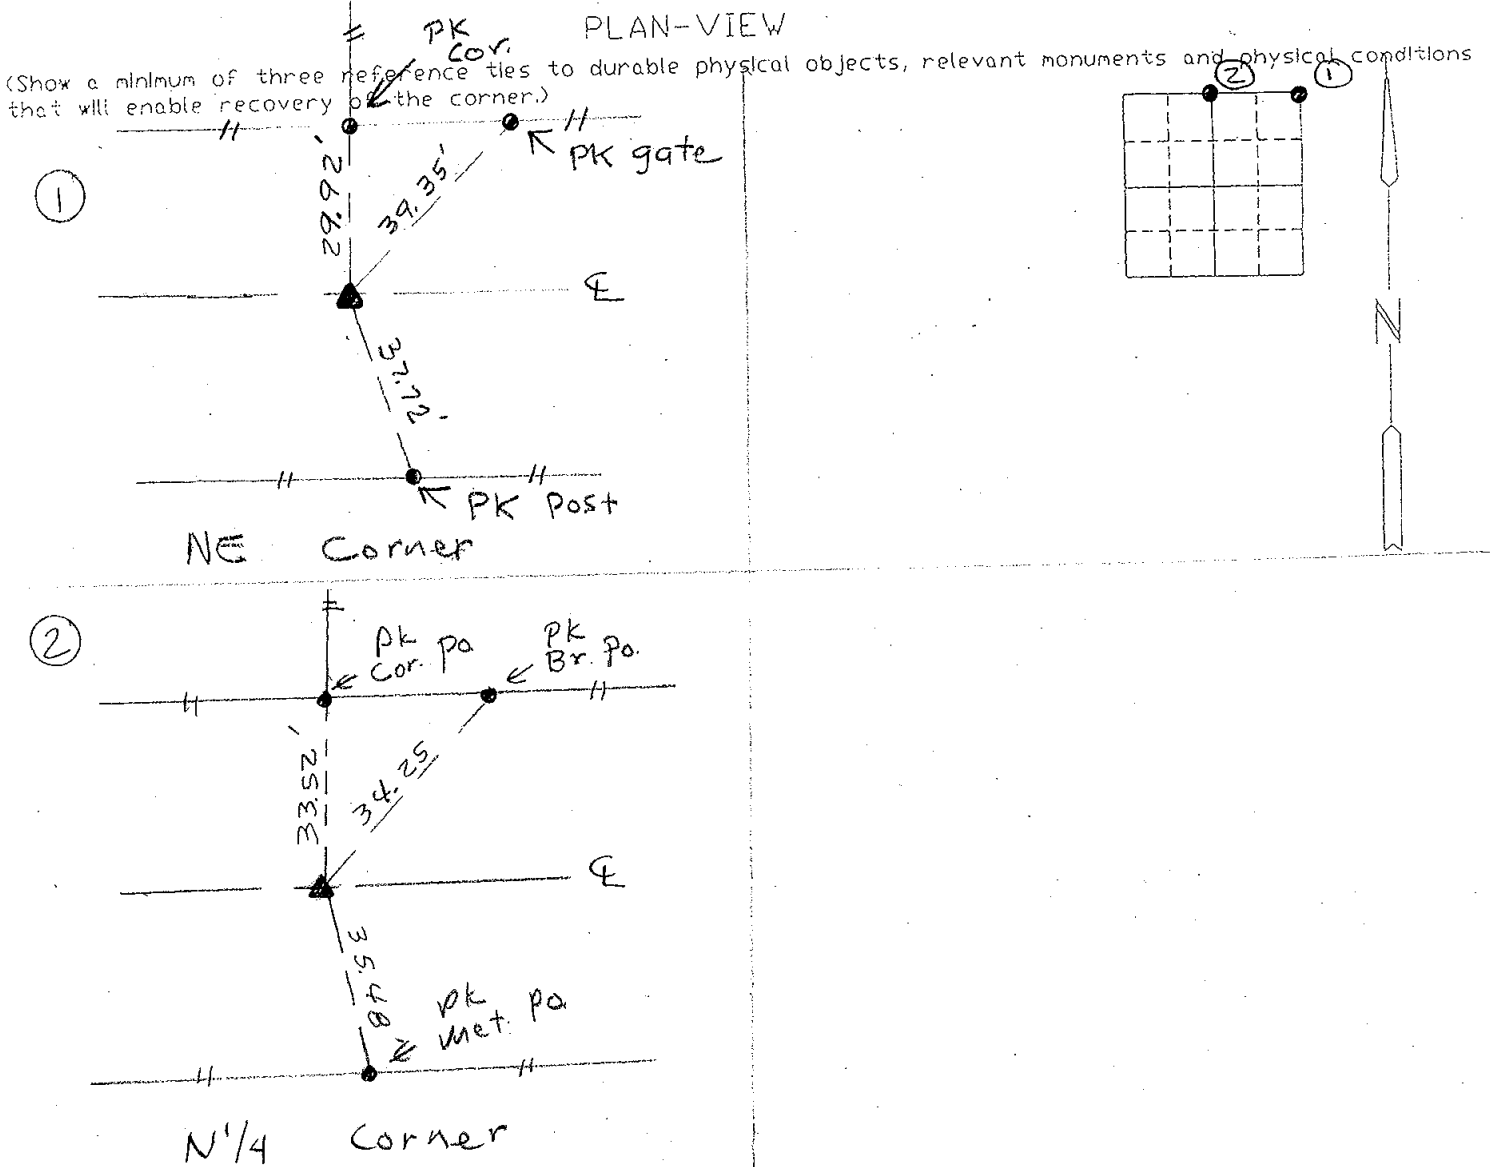 PLAN-VIEW
(Show a minimum of three reference ties to durable physical objects, relevant monuments and physical conditions
that will enable recovery of the corner.)
PK
Cor.
2
1
1
PK gate
29.92'
39.35'
℄
37.72'
PK Post
NE Corner
N
2
PK
Cor. po
PK
Br. Po.
33.52'
34.25
℄
35.48'
PK
Met. po.
N 1/4 Corner